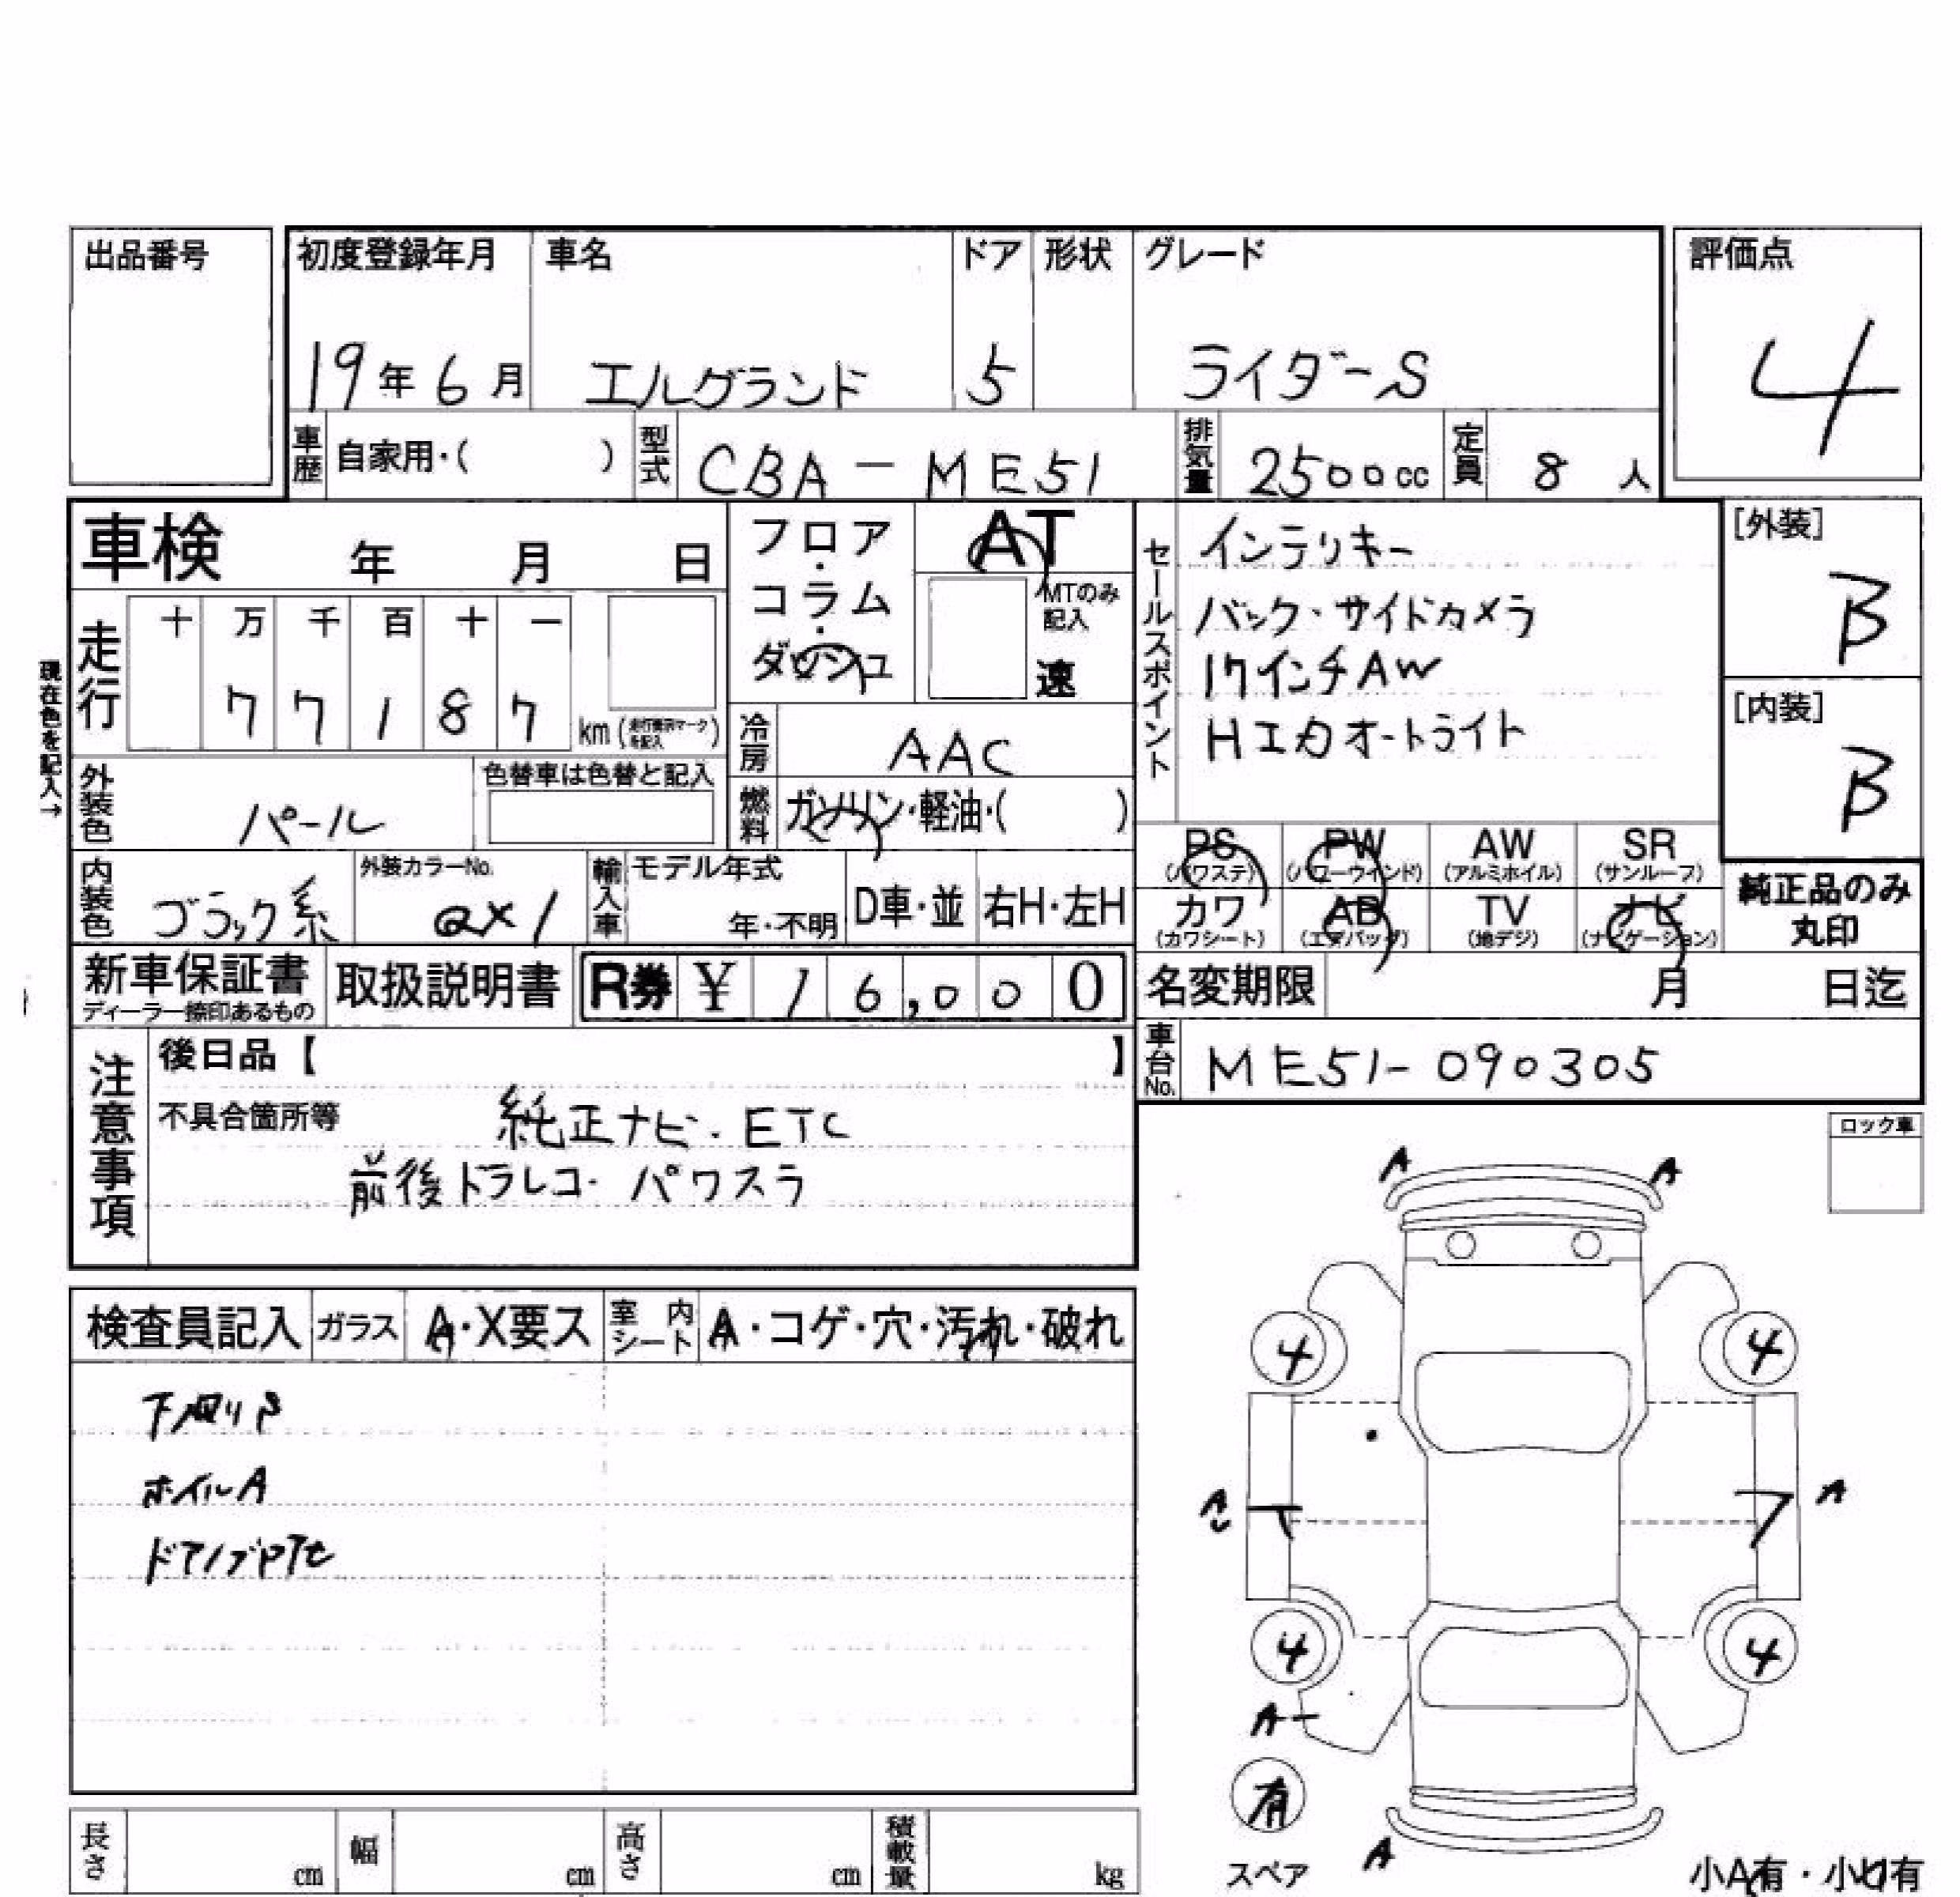 出品番号
初度登録年月 車名 ドア 形状 グレード 評価点
19年6月 エルグランド 5 ライダーS 4
車歴 自家用・( ) 型式 CBA-ME51 排気量 2500cc 定員 8人
車検 年 月 日
フロア・コラム・ダッシュ AT
MTのみ記入 速
セールスポイント
インテリキー
バック・サイドカメラ
17インチAW
Hエカオートライト
[外装] B
[内装] B
現在色を記入→
走行 十 万 千 百 十 一
77187 km
冷房 AAC
外装色 パール 色替車は色替と記入
燃料 ガソリン・軽油・( )
PS (パワステ) PW (パワーウインド) AW (アルミホイル) SR (サンルーフ)
カワ (カワシート) AB (エアバッグ) TV (地デジ) ナビ (ナビゲーション)
純正品のみ
丸印
内装色 ブラック系 外装カラーNo. QX1 輸入車 モデル年式 年・不明 D車・並 右H・左H
新車保証書 ディーラー捺印あるもの 取扱説明書 R券 ¥ 16,000
名変期限 月 日迄
車台No. ME51-090305
注意事項
後日品【 】
不具合箇所等 純正ナビ・ETC
前後ドラレコ・パワスラ
ロック車
A A
検査員記入 ガラス A・X要ス 室内シート A・コゲ・穴・汚れ・破れ
ホイルA
4 4
A
4 4
A
有
スペア
A
小A有・小U有
長さ cm 幅 cm 高さ cm 積載量 kg